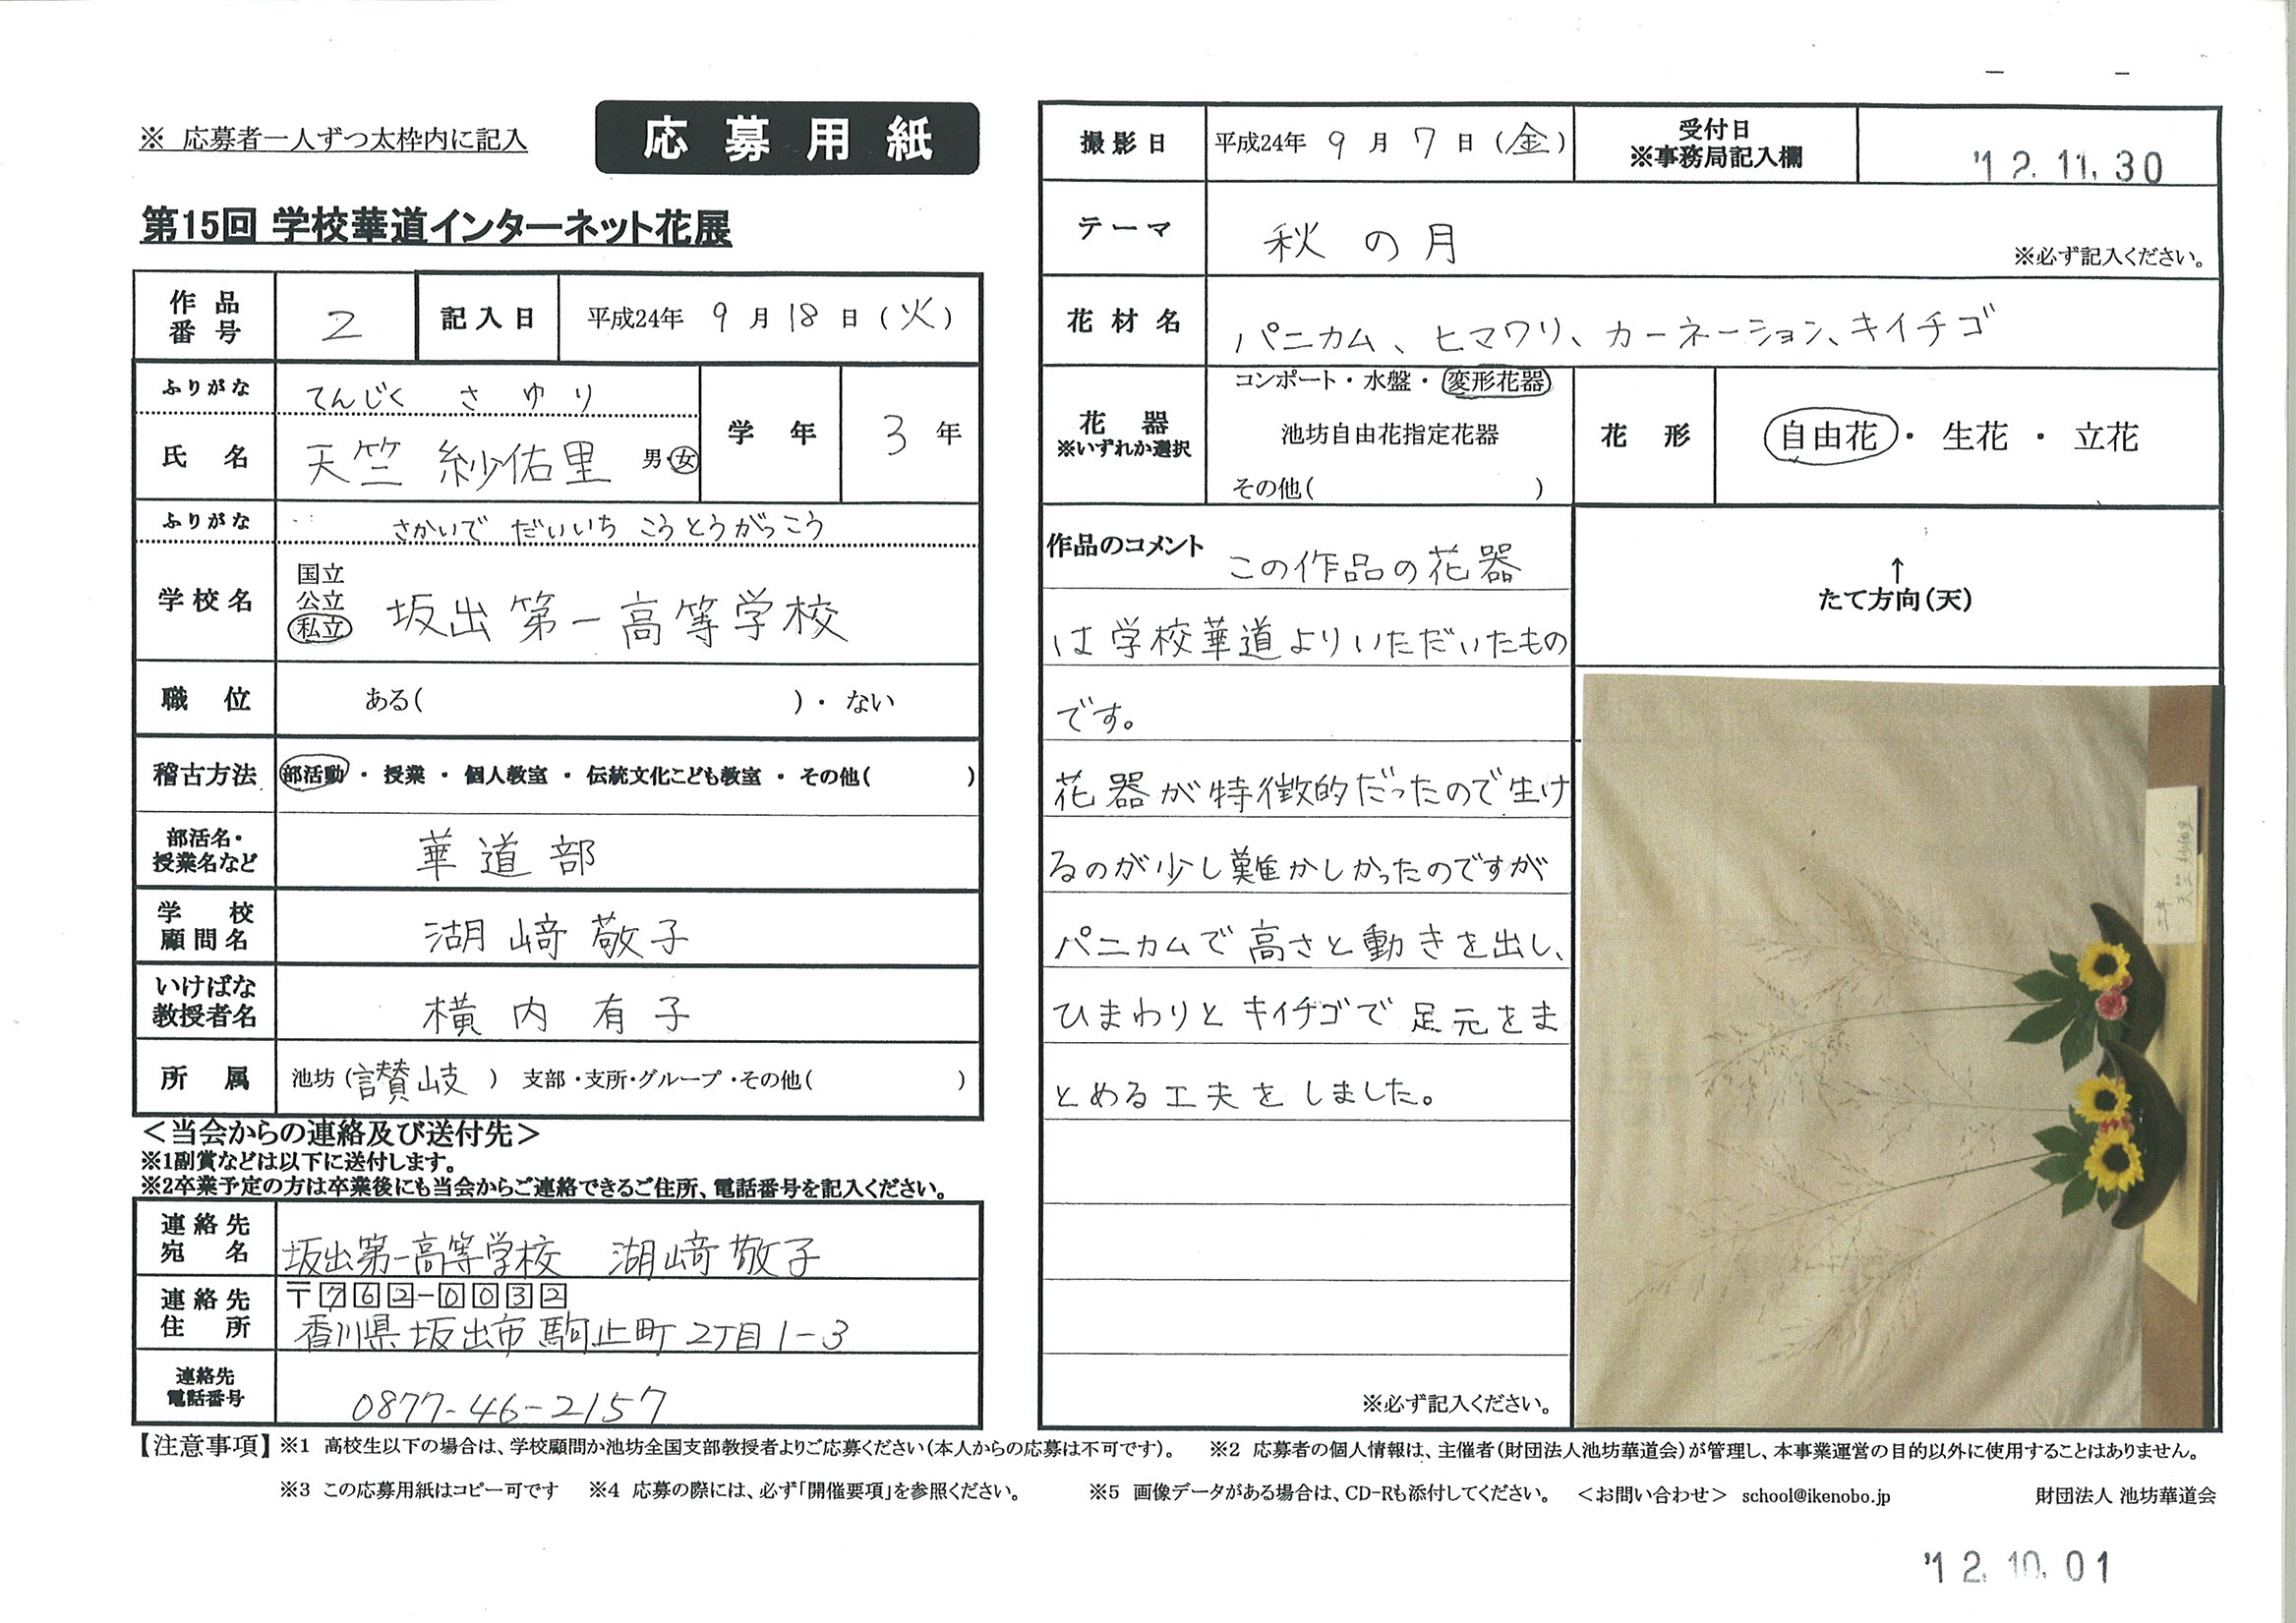 ※ 応募者一人ずつ太枠内に記入
応募用紙
第15回 学校華道インターネット花展
作品番号 2 記入日 平成24年 9月18日(火)
ふりがな てんじく さゆり
氏名 天竺 紗佑里 男・女 学年 3年
ふりがな さかいで だいいち こうとうがっこう
学校名 国立 公立 私立 坂出第一高等学校
職位 ある( )・ ない
稽古方法 部活動 ・ 授業 ・ 個人教室 ・ 伝統文化こども教室 ・ その他( )
部活名・授業名など 華道部
学校顧問名 湖﨑敬子
いけばな教授者名 横内有子
所属 池坊(讃岐) 支部・支所・グループ・その他( )
<当会からの連絡及び送付先>
※1副賞などは以下に送付します。
※2卒業予定の方は卒業後にも当会からご連絡できるご住所、電話番号を記入ください。
連絡先宛名 坂出第一高等学校 湖﨑敬子
連絡先住所 〒762-0032
香川県坂出市駒止町2丁目1-3
連絡先電話番号 0877-46-2157
撮影日 平成24年 9月7日(金) 受付日 ※事務局記入欄 '12.11.30
テーマ 秋の月 ※必ず記入ください。
花材名 パニカム、ヒマワリ、カーネーション、キイチゴ
花器 ※いずれか選択 コンポート・水盤・変形花器
池坊自由花指定花器
その他( )
花形 自由花・ 生花 ・ 立花
作品のコメント この作品の花器
は学校華道よりいただいたもの
です。
花器が特徴的だったので生け
るのが少し難かしかったのですが
パニカムで高さと動きを出し、
ひまわりとキイチゴで足元をま
とめる工夫をしました。
※必ず記入ください。
↑
たて方向(天)
三年
天竺 紗佑里
【注意事項】※1 高校生以下の場合は、学校顧問か池坊全国支部教授者よりご応募ください(本人からの応募は不可です)。 ※2 応募者の個人情報は、主催者(財団法人池坊華道会)が管理し、本事業運営の目的以外に使用することはありません。
※3 この応募用紙はコピー可です ※4 応募の際には、必ず「開催要項」を参照ください。 ※5 画像データがある場合は、CD-Rも添付してください。 <お問い合わせ> school@ikenobo.jp 財団法人 池坊華道会
'12.10.01